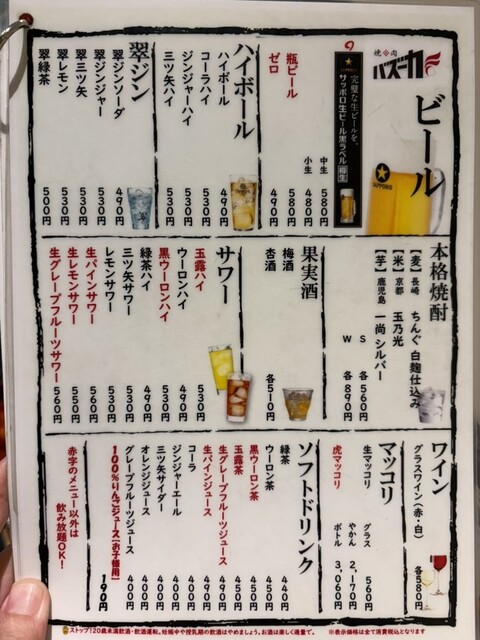 焼肉
バズーカ
ビール
完璧な生ビールを。
サッポロ生ビール黒ラベル
樽生
SAPPORO
中生 580円
小生 480円
瓶ビール 580円
ゼロ 490円
ハイボール
ハイボール 490円
コーラハイ 530円
ジンジャーハイ 530円
三ツ矢ハイ 530円
翠ジン
翠ジンソーダ 490円
翠ジンジャー 530円
翠三ツ矢 530円
翠レモン 530円
翠緑茶 500円
本格焼酎
【麦】長崎 ちんぐ 白麹仕込み
【米】京都 玉乃光
【芋】鹿児島 一尚 シルバー
S 各560円
W 各890円
果実酒
梅酒
杏酒
各510円
サワー
玉露ハイ 530円
ウーロンハイ 490円
黒ウーロンハイ 530円
緑茶ハイ 490円
三ツ矢サワー 530円
レモンサワー 530円
生パインサワー 560円
生レモンサワー 550円
生グレープフルーツサワー 560円
ワイン
グラスワイン(赤・白) 各580円
マッコリ
生マッコリ グラス 560円
やかん 2,170円
虎マッコリ ボトル 3,060円
ソフトドリンク
緑茶 440円
ウーロン茶 400円
黒ウーロン茶 450円
玉露茶 450円
生グレープフルーツジュース 490円
生パインジュース 490円
コーラ 400円
ジンジャーエール 400円
三ツ矢サイダー 400円
オレンジジュース 400円
グレープフルーツジュース 400円
100%りんごジュース【お子様用】 190円
赤字のメニュー以外は
飲み放題OK!
ストップ!20歳未満飲酒・飲酒運転。妊娠中や授乳期の飲酒はやめましょう。お酒は楽しく適量で。
※表示価格は全て消費税込となります。